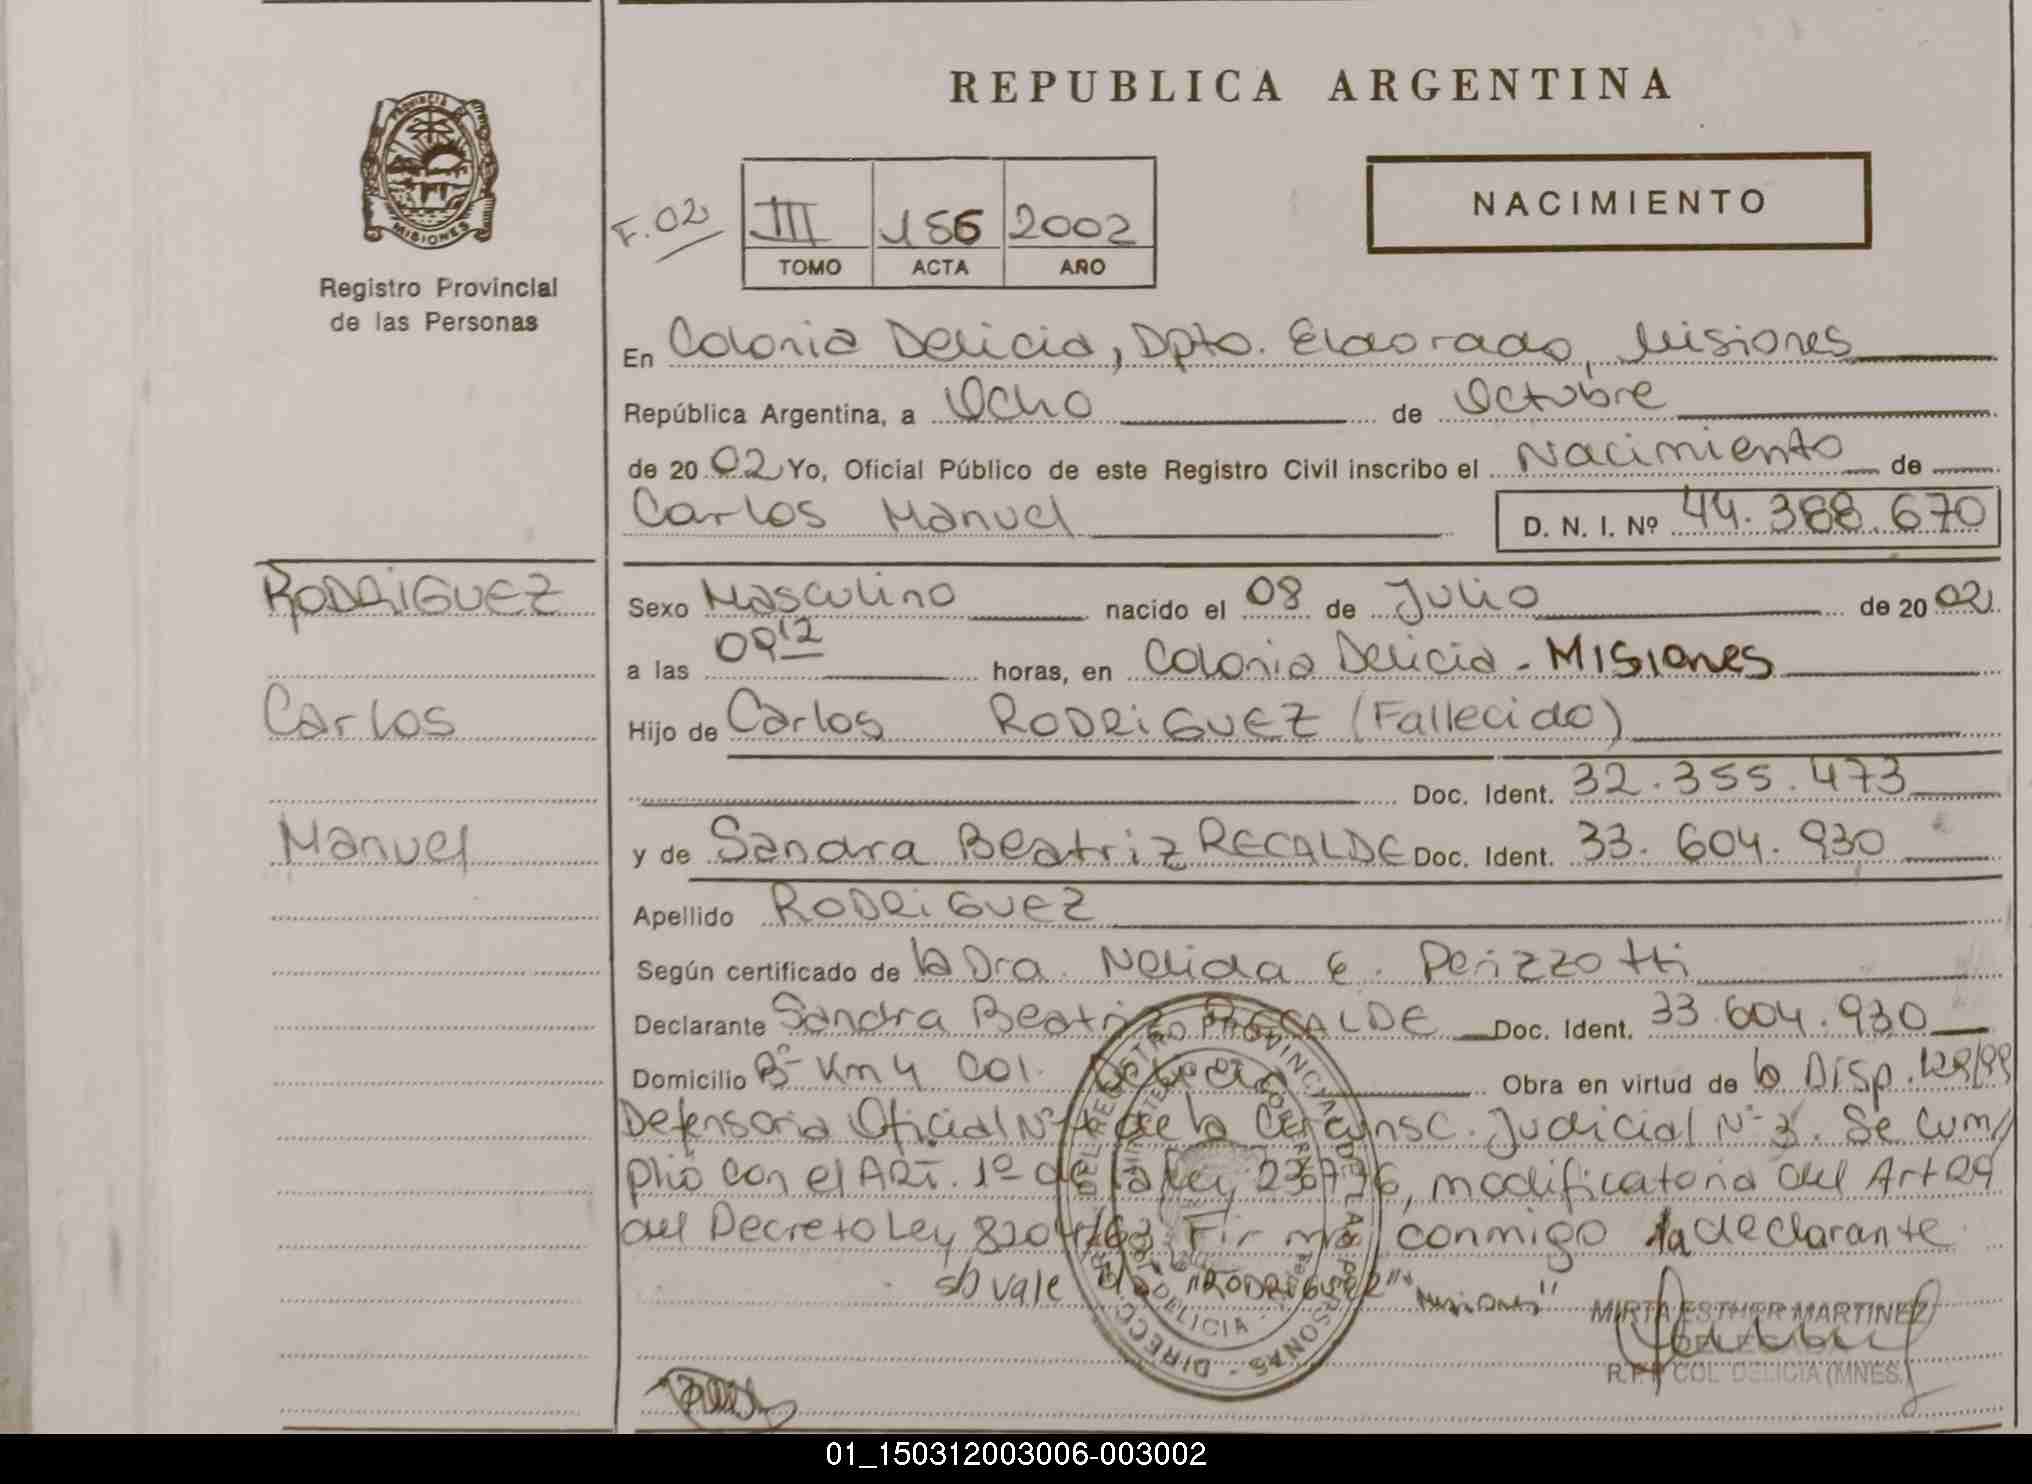 REPUBLICA ARGENTINA
PROVINCIA DE
MISIONES
Registro Provincial
de las Personas
NACIMIENTO
F. 02
III 156 2002
TOMO ACTA AÑO
En Colonia Delicia, Dpto. Eldorado, Misiones
República Argentina, a Ocho de Octubre
de 2002 Yo, Oficial Público de este Registro Civil inscribo el Nacimiento de
Carlos Manuel D. N. I. Nº 44.388.670
RODRIGUEZ
Carlos
Manuel
Sexo Masculino nacido el 08 de Julio de 2002
a las 09 12 horas, en Colonia Delicia - Misiones
Hijo de Carlos RODRIGUEZ (Fallecido)
Doc. Ident. 32.355.473
y de Sandra Beatriz RECALDE Doc. Ident. 33.604.930
Apellido RODRIGUEZ
Según certificado de la Dra. Nelida E. Perizzotti
Declarante Sandra Beatriz RECALDE Doc. Ident. 33.604.930
Domicilio Bº Km 4 Col. Delicia Obra en virtud de la Disp. 129/99
Defensoria Oficial Nº de la Circunsc. Judicial Nº 3. Se cum
plió con el ART. 1º de la ley 23776, modificatoria del Art 29
del Decreto Ley 8204/63 Firma conmigo la declarante
s/b vale "RODRIGUEZ" "Misiones"
MIRTA ESTHER MARTINEZ
R.P.P COL DELICIA (MNES.)
01_150312003006-003002